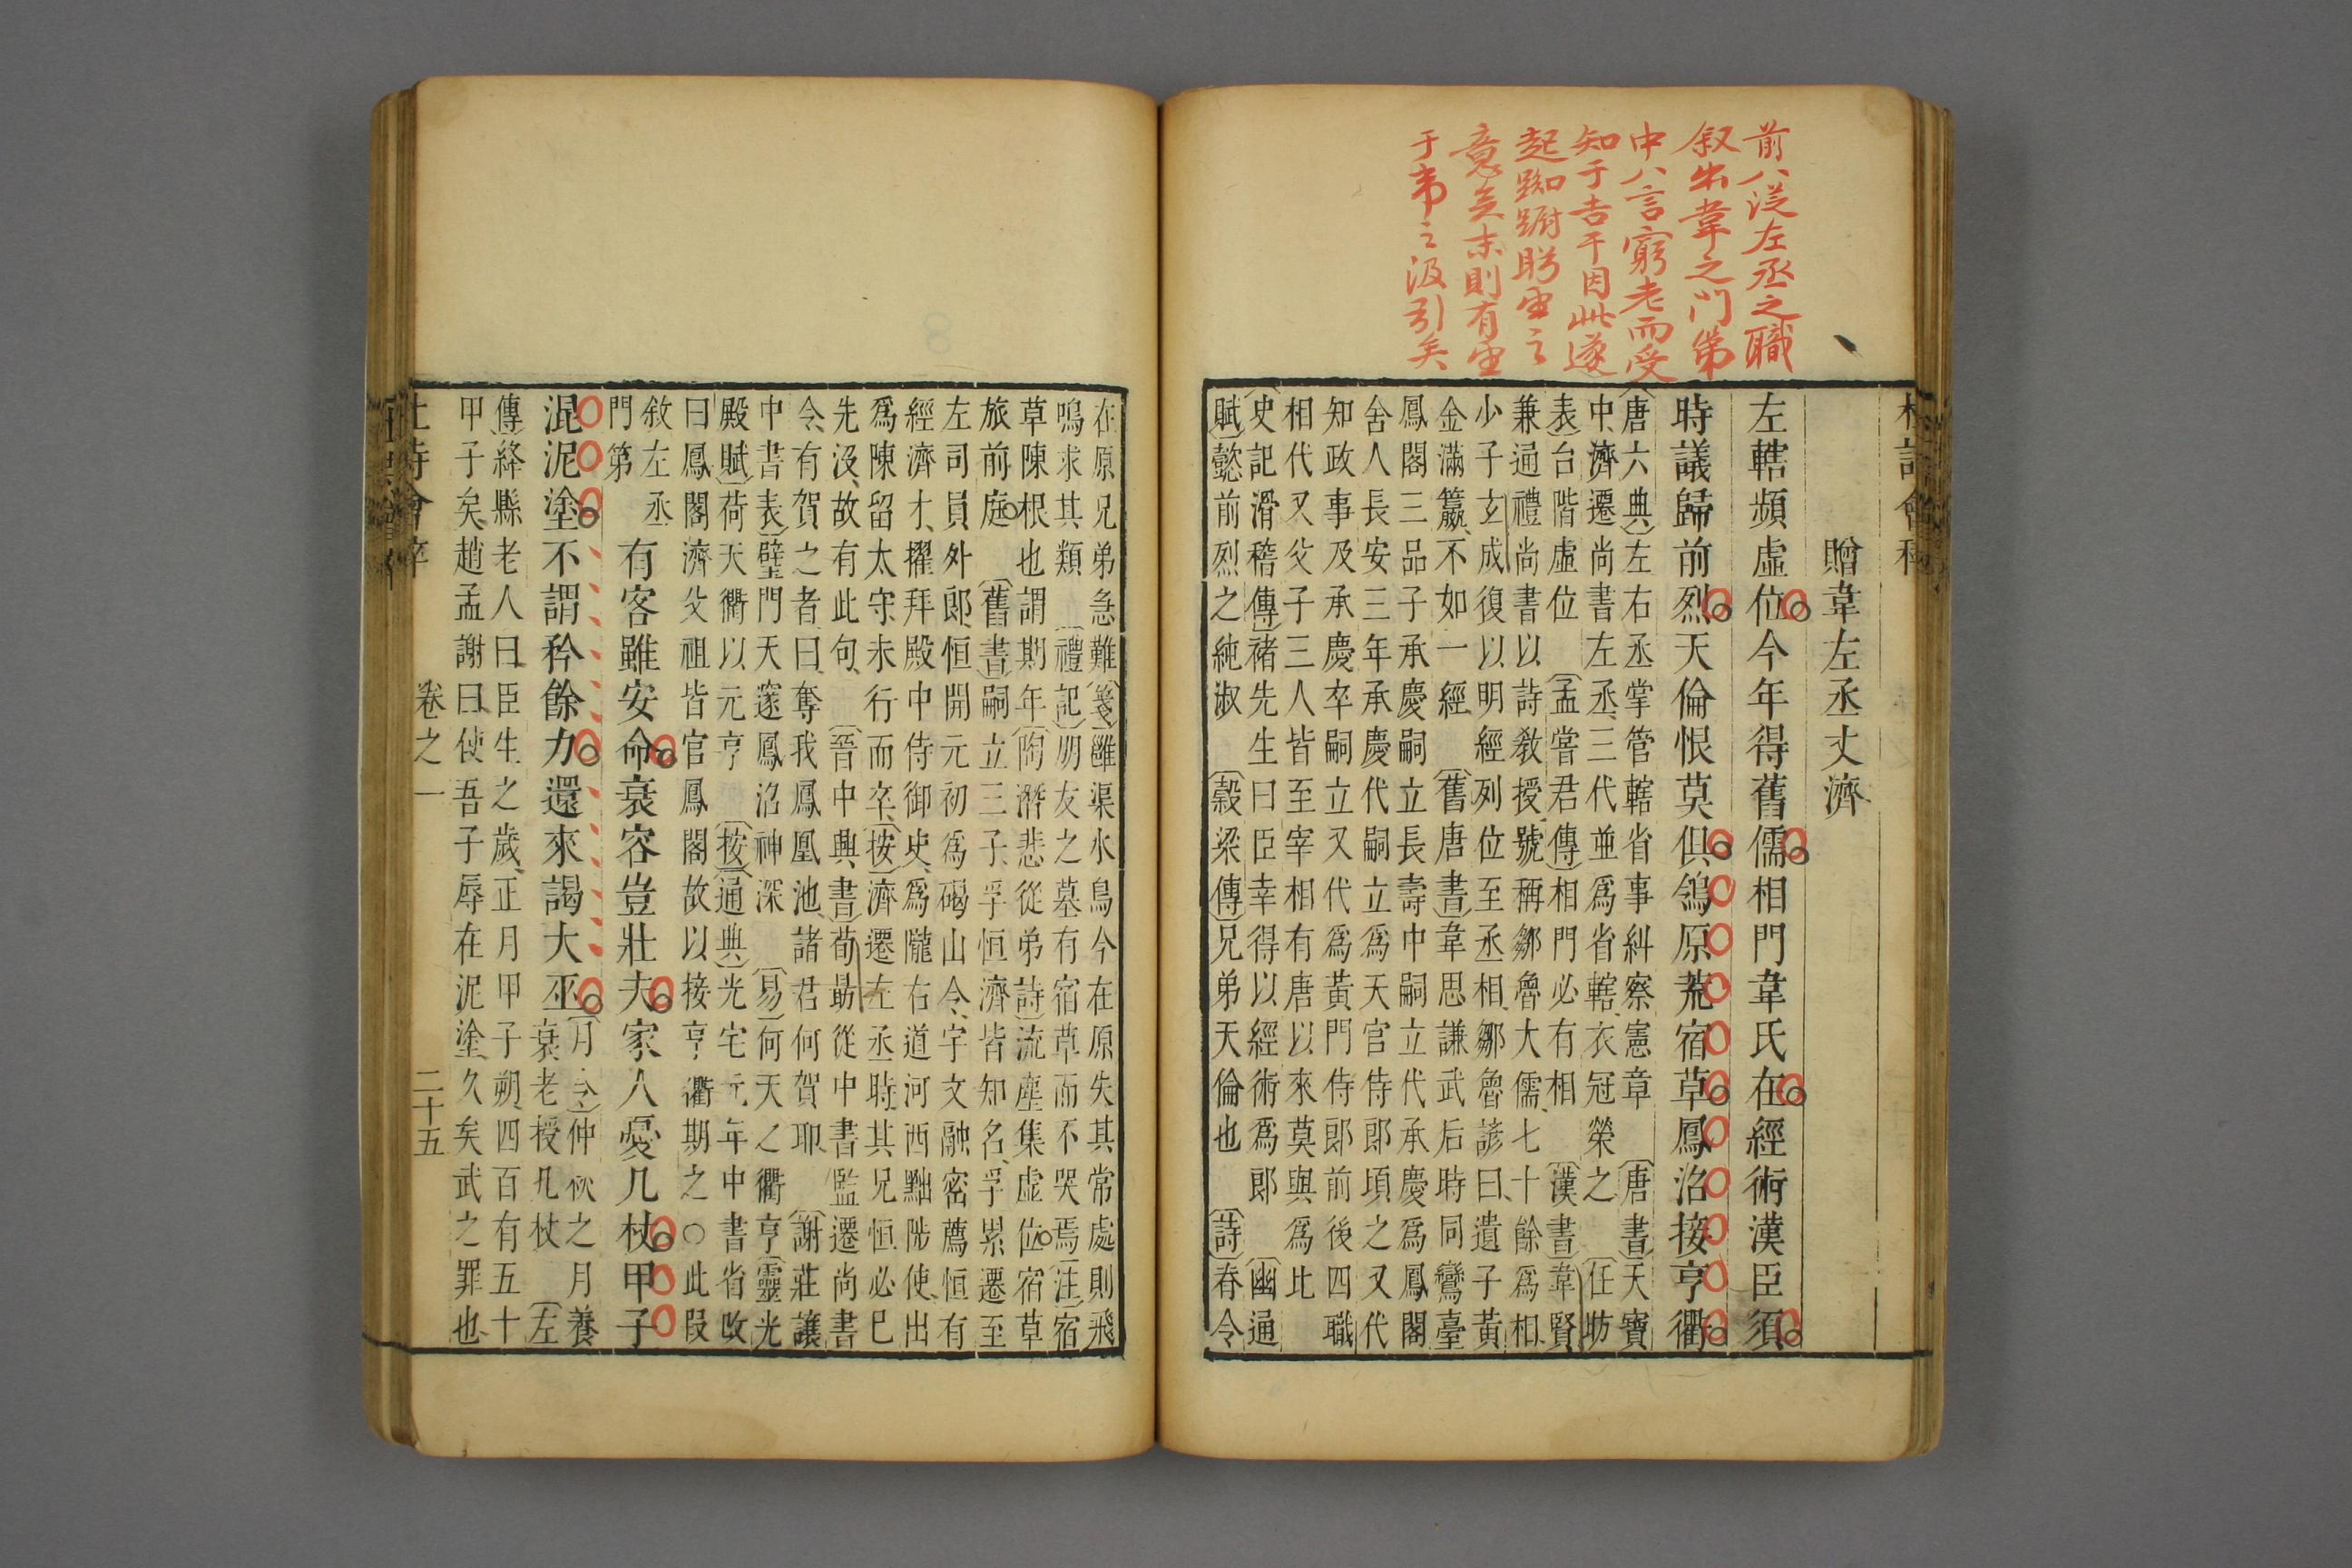 前八從左丞之職
叙出韋之門第
中八言窮老而受
知于吉干因此遂
起踟躕盼望之
意矣末則有望
于韋之汲引矣
贈韋左丞丈濟
左轄頻虛位今年得舊儒相門韋氏在經術漢臣須
時議歸前烈天倫恨莫俱鴒原荒宿草鳳沼接亨衢
唐六典左右丞掌管轄省事糾察憲章 唐書天寶
中濟遷尚書左丞三代並爲省轄衣冠榮之 任昉
表台階虛位 孟嘗君傳相門必有相 漢書韋賢
兼通禮尚書以詩教授號稱鄒魯大儒七十餘爲相
少子玄成復以明經列位至丞相鄒魯諺曰遺子黃
金滿籯不如一經 舊唐書韋思謙武后時同鸞臺
鳳閣三品子承慶嗣立長壽中嗣立代承慶爲鳳閣
舍人長安三年承慶代嗣立爲天官侍郎頃之又代
知政事及承慶卒嗣立又代爲黃門侍郎前後四職
相代又父子三人皆至宰相有唐以來莫與爲比
史記滑稽傳褚先生曰臣幸得以經術爲郎 幽通
賦懿前烈之純淑 穀梁傳兄弟天倫也 詩春令
在原兄弟急難箋雝渠水鳥今在原失其常處則飛
鳴求其類 禮記朋友之墓有宿草而不哭焉注宿
草陳根也謂期年陶潛悲從弟詩流塵集虛位宿草
旅前庭 舊書嗣立三子孚恒濟皆知名孚累遷至
左司員外郎恒開元初爲碭山令宇文融密薦恒有
經濟才擢拜殿中侍御史爲隴右道河西黜陟使出
爲陳留太守未行而卒按濟遷左丞時其兄恒必已
先沒故有此句 晉中興書荀勗從中書監遷尚書
令有賀之者曰奪我鳳凰池諸君何賀耶 謝莊讓
中書表璧門天邃鳳沼神深 易何天之衢亨靈光
殿賦荷天衢以元亨 按通典光宅元年中書省改
曰鳳閣濟父祖皆官鳳閣故以接亨衢期之○此段
敘左丞
門第
有客雖安命衰容豈壯夫家人憂几杖甲子
混泥塗不謂矜餘力還來謁大巫月令仲秋之月養
衰老授几杖 左
傳絳縣老人曰臣生之歲正月甲子朔四百有五十
甲子矣趙孟謝曰使吾子辱在泥塗久矣武之罪也
卷之一 二十五